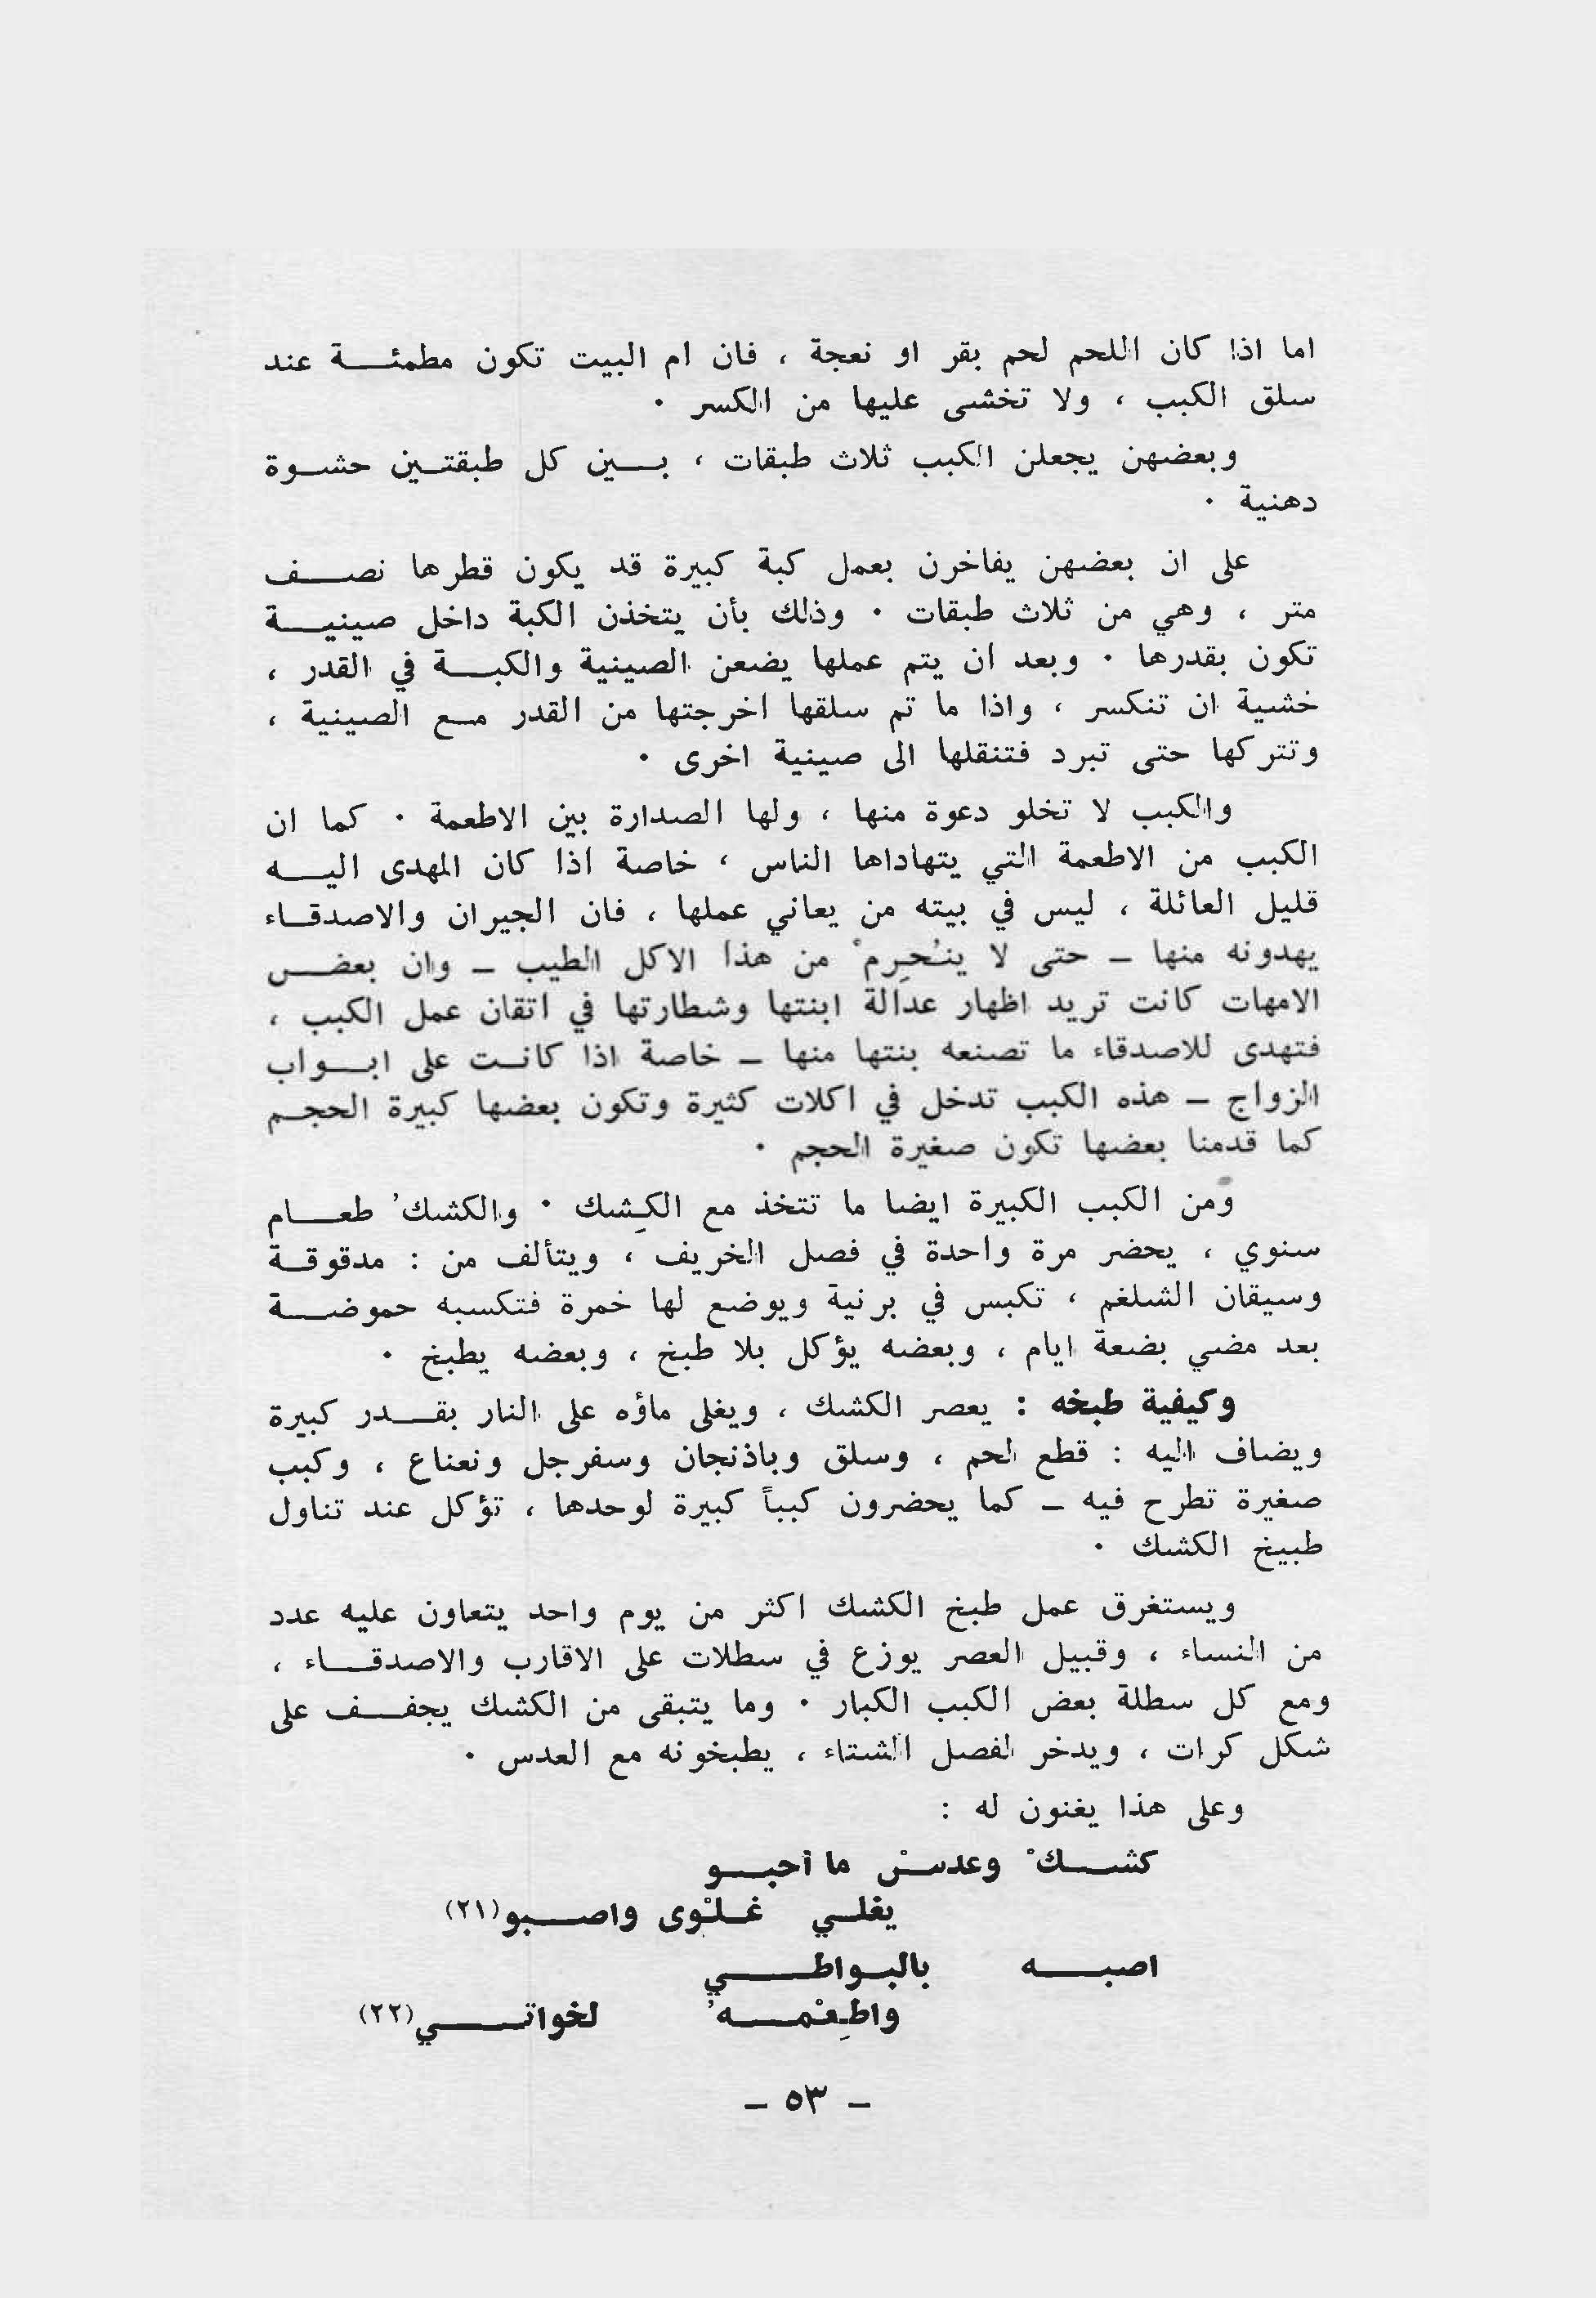 اما اذا كان اللحم لحم بقر او نعجة ، فان ام البيت تكون مطمئة عند
سلق الكبب ، ولا تخشى عليها من الكسر ·
وبعضهن يجعلن الكبب ثلاث طبقات ، بين كل طبقتين حشوة
دهنية ·
على ان بعضهن يفاخرن بعمل كبة كبيرة قد يكون قطرها نصف
متر ، وهي من ثلاث طبقات · وذلك بأن يتخذن الكبة داخل صينية
تكون بقدرها · وبعد ان يتم عملها يضعن الصينية والكبة في القدر ،
خشية ان تنكسر ، واذا ما تم سلقها اخرجتها من القدر مع الصينية ،
وتتركها حتى تبرد فتنقلها الى صينية اخرى ·
والكبب لا تخلو دعوة منها ، ولها الصدارة بين الاطعمة · كما ان
الكبب من الاطعمة التي يتهاداها الناس ، خاصة اذا كان المهدى اليه
قليل العائلة ، ليس في بيته من يعاني عملها ، فان الجيران والاصدقاء
يهدونه منها – حتى لا ينْحرِمْ من هذا الاكل الطيب – وان بعض
الامهات كانت تريد اظهار عدالة ابنتها وشطارتها في اتقان عمل الكبب ،
فتهدى للاصدقاء ما تصنعه بنتها منها – خاصة اذا كانت على ابواب
الزواج – هذه الكبب تدخل في اكلات كثيرة وتكون بعضها كبيرة الحجم
كما قدمنا بعضها تكون صغيرة الحجم ·
ومن الكبب الكبيرة ايضا ما تتخذ مع الكِشك · والكشكُ طعام
سنوي ، يحضر مرة واحدة في فصل الخريف ، ويتألف من : مدقوقة
وسيقان الشلغم ، تكبس في برنية ويوضع لها خمرة فتكسبه حموضة
بعد مضي بضعة ايام ، وبعضه يؤكل بلا طبخ ، وبعضه يطبخ ·
وكيفية طبخه : يعصر الكشك ، ويغلى ماؤه على النار بقدر كبيرة
ويضاف اليه : قطع لحم ، وسلق وباذنجان وسفرجل ونعناع ، وكبب
صغيرة تطرح فيه – كما يحضرون كبباً كبيرة لوحدها ، تؤكل عند تناول
طبيخ الكشك ·
ويستغرق عمل طبخ الكشك اكثر من يوم واحد يتعاون عليه عدد
من النساء ، وقبيل العصر يوزع في سطلات على الاقارب والاصدقاء ،
ومع كل سطلة بعض الكبب الكبار · وما يتبقى من الكشك يجفف على
شكل كرات ، ويدخر لفصل الشتاء ، يطبخونه مع العدس ·
وعلى هذا يغنون له :
كشكْ وعدسْ ما أحبو
يغلي غلْوى واصبو(٢١)
اصبه بالبواطي
واطعِمْهُ لخواتي(٢٢)
– ٥٣ –